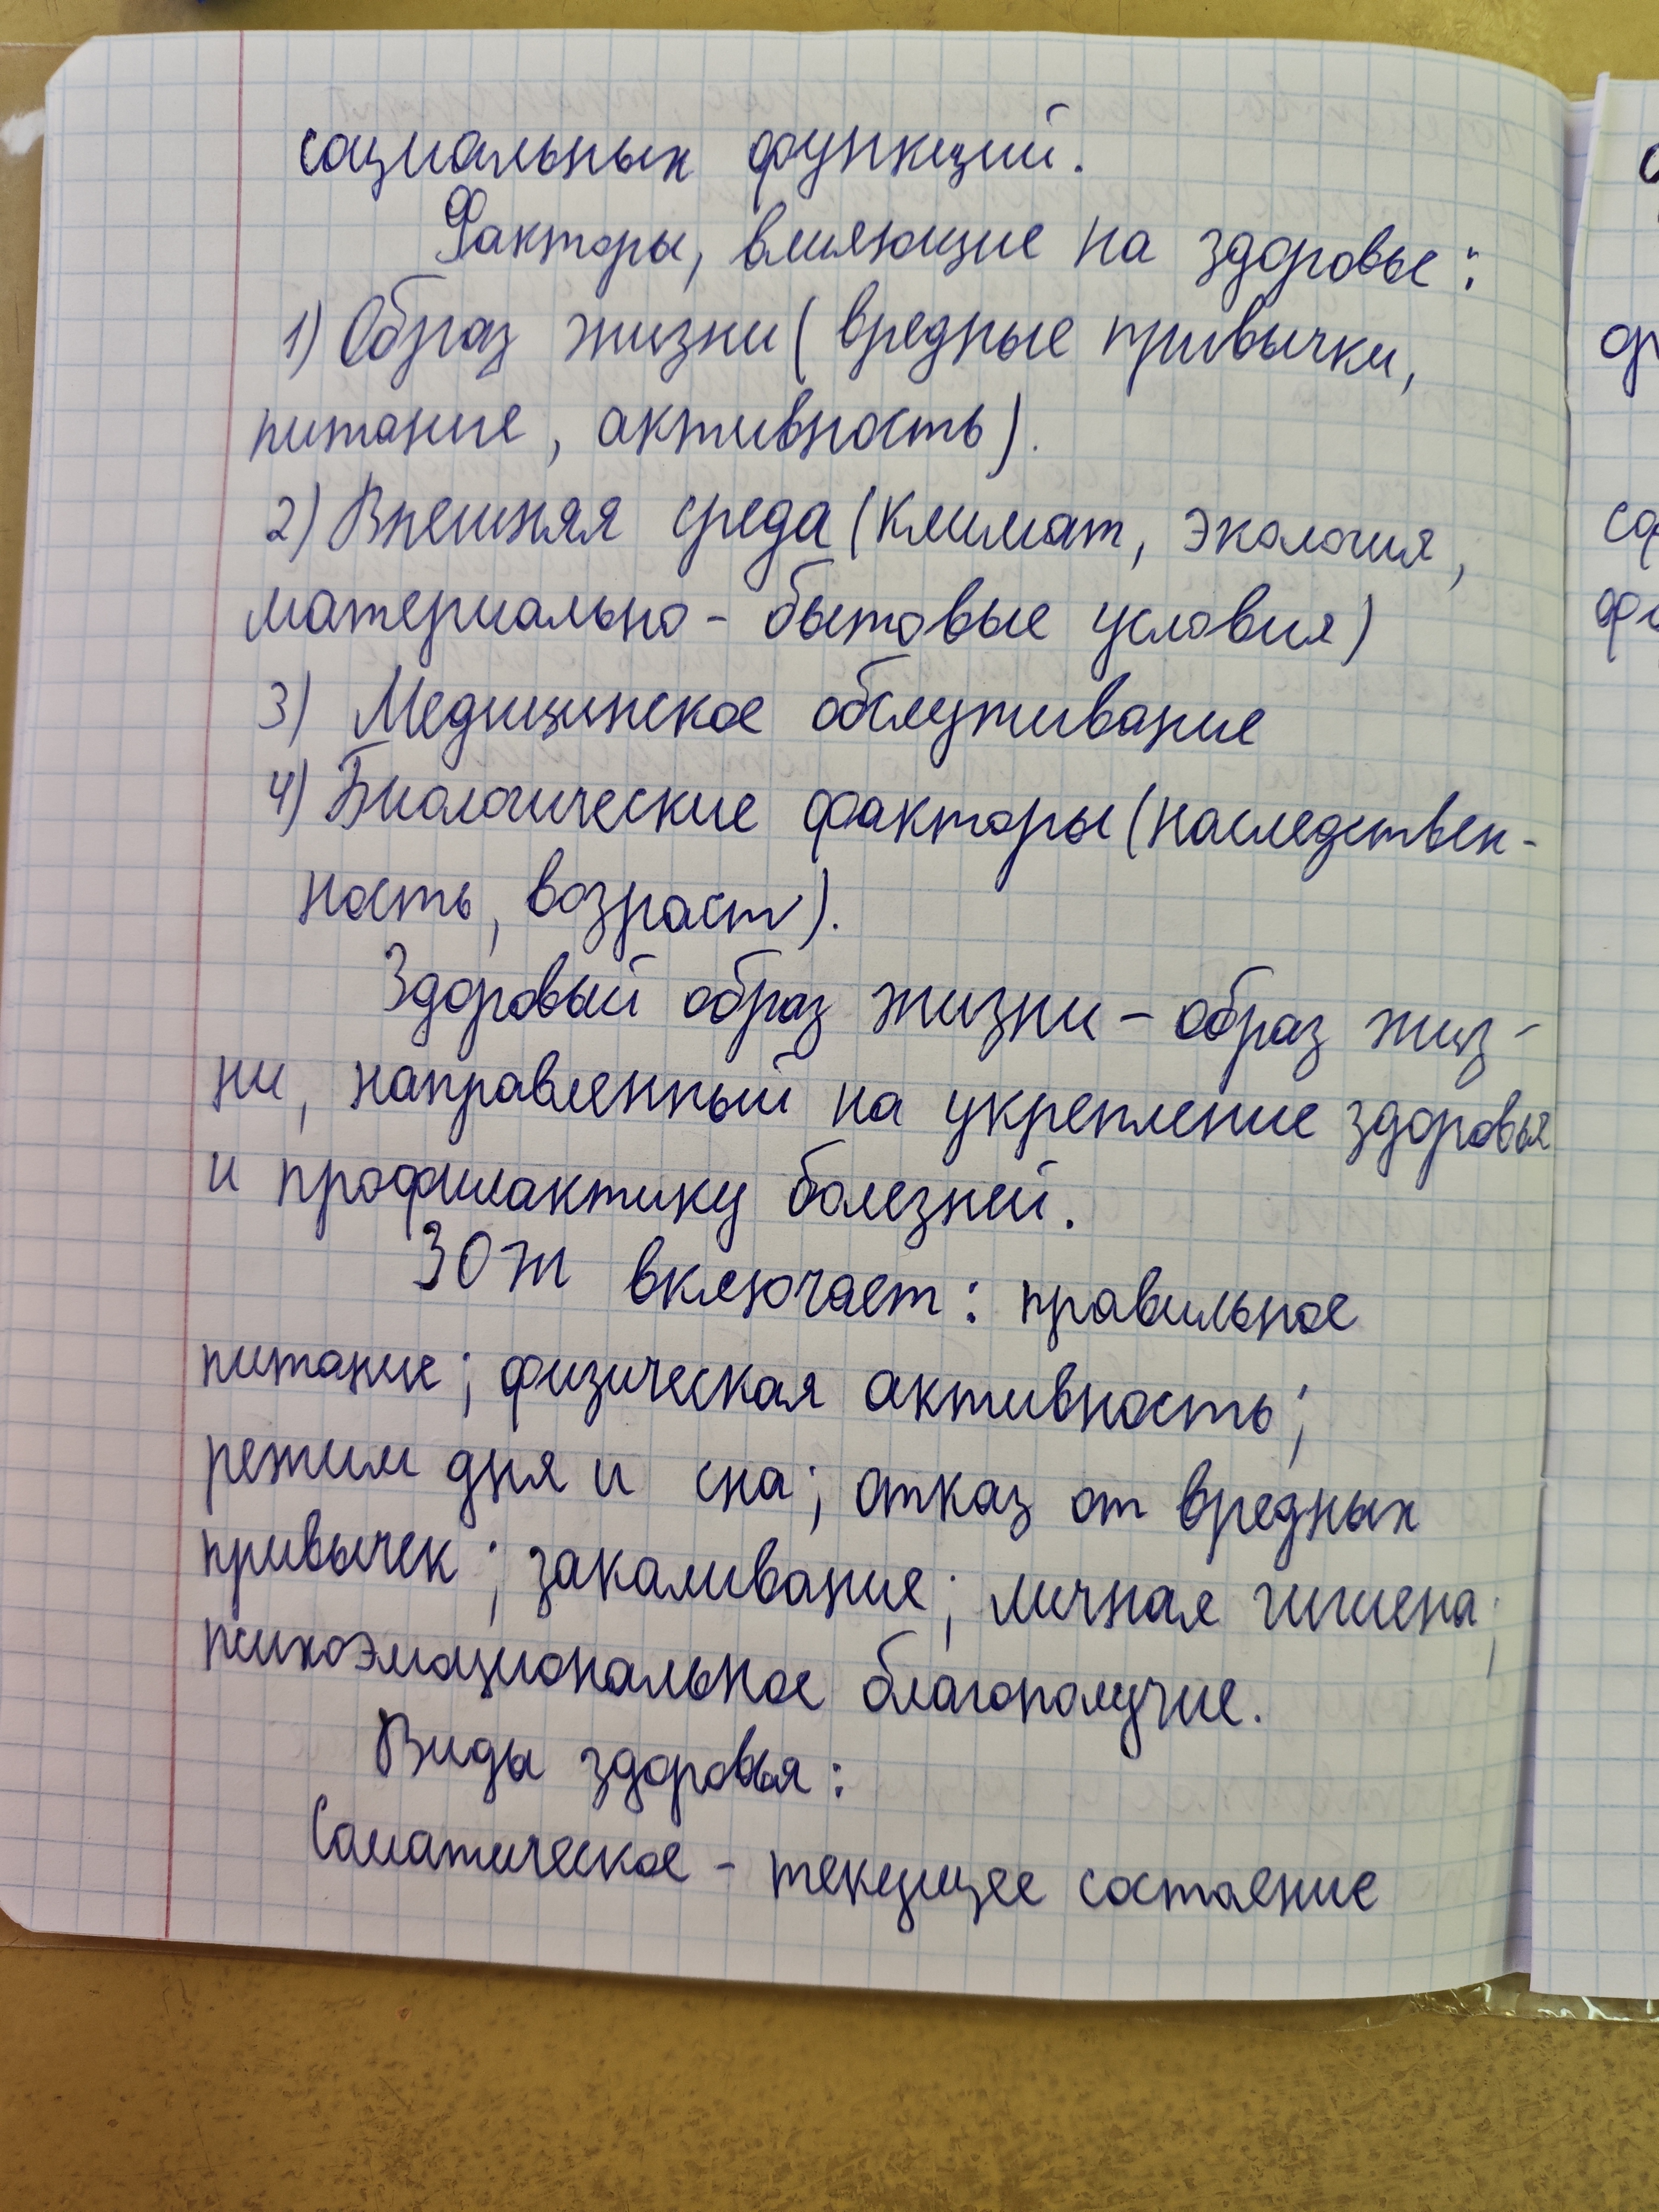 социальных функций.
Факторы, влияющие на здоровье:
1) Образ жизни (вредные привычки,
питание, активность).
2) Внешняя среда (климат, экология,
материально - бытовые условия)
3) Медицинское обслуживание
4) Биологические факторы (наследствен-
ность, возраст).
Здоровый образ жизни - образ жиз-
ни, направленный на укрепление здоровья
и профилактику болезней.
ЗОЖ включает: правильное
питание; физическая активность;
режим дня и сна; отказ от вредных
привычек; закаливание; личная гигиена;
психоэмоциональное благополучие.
Виды здоровья:
Соматическое - текущее состояние